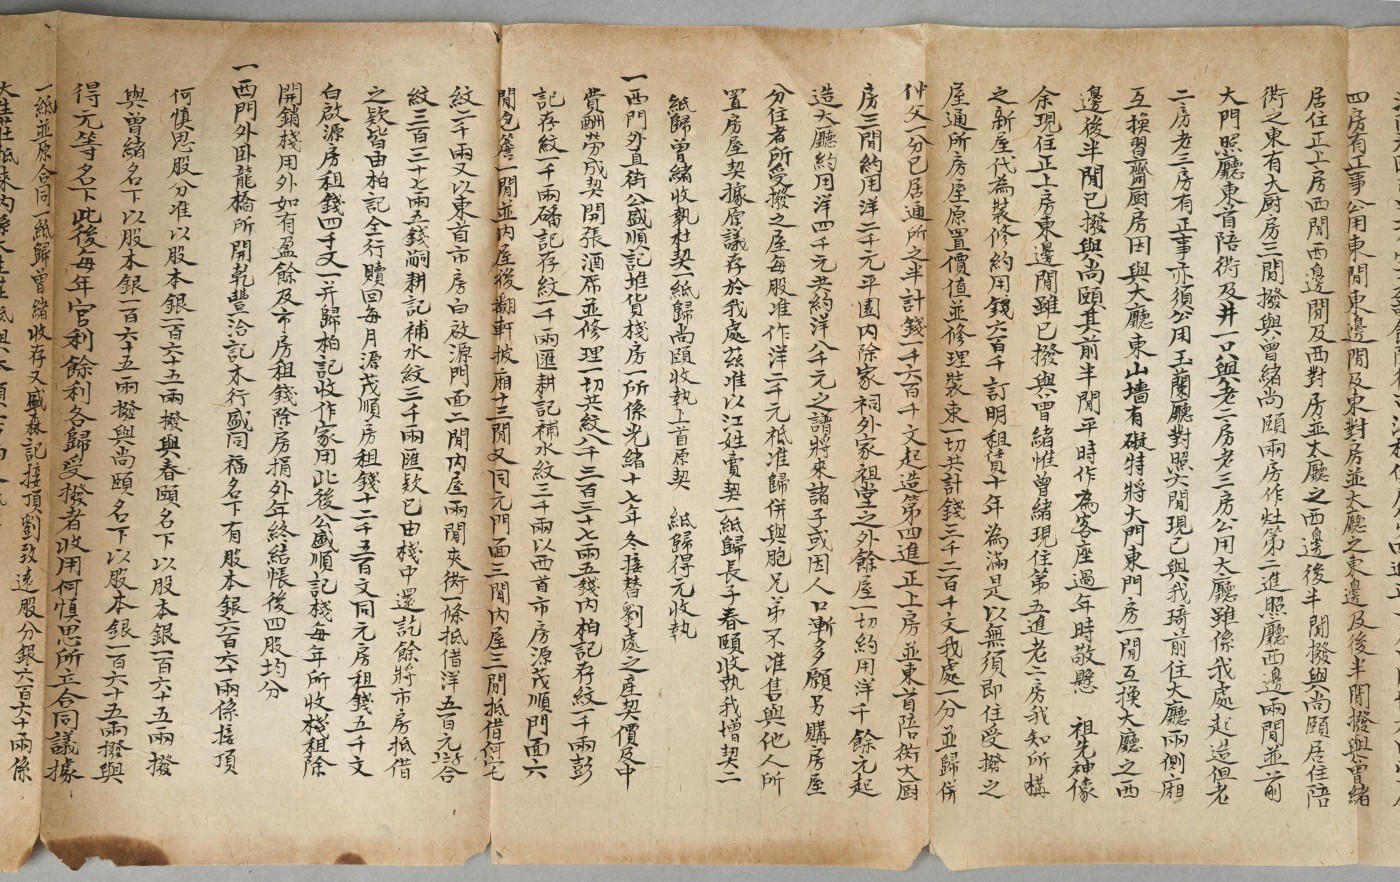 四房有正事公用東間東邊間及東對房並大廳之東邊及後半間撥與曾緒
居住正上房西間西邊間及西對房並大廳之西邊後半間撥與尚頤居住陪
衖之東有大厨房三間撥與曾緒尚頤兩房作灶第二進照廳西邊兩間並前
大門照廳東首陪衖及井一口與老二房老三房公用大廳雖係我處起造但老
二房老三房有正事亦須公用玉蘭廳對照六間現已與我琦前住大廳兩側廂
互換習齋厨房因與大廳東山墻有礙特將大門東門房一間互換大廳之西
邊後半間已撥與尚頤其前半間平時作為客座過年時敬懸 祖先神像
余現住正上房東邊間雖已撥與曾緒惟曾緒現住第五進老二房我知所構
之新屋代為裝修約用錢六百千訂明租賃十年為滿是以無須即住受撥之
屋通所房屋原置價值並修理裝束一切共計錢三千二百千文我處一分並歸併
仲父一分已居通所之半計錢一千六百千文起造第四進正上房並東首陪衖大厨
房三間約用洋二千元平園內除家祠外家祖堂之外餘屋一切約用洋千餘元起
造大廳約用洋四千元共約洋八千元之譜將來諸子或因人口漸多願另購房屋
分住者所受撥之屋每股准作洋二千元祗准歸併與胞兄弟不准售與他人所
置房屋契據原議存於我處茲准以江姓賣契一紙歸長子春頤收執我增契二
紙歸曾緒收執杜契一紙歸尚頤收執上首原契 紙歸得元收執
一西門外直街公盛順記堆貨棧房一所係光緒十七年冬接替劉處之產契價及中
費酬勞成契開張酒席並修理一切共紋八千三百三十七兩五錢內柏記存紋一千兩彭
記存紋一千兩磻記存紋一千兩匯耕記補水紋三千兩以西首市房源茂順門面六
間包簷一間並內屋後翻軒披廂十三間又同元門面三間內屋三間抵借何宅
紋二千兩又以東首市房白啟源門面二間內屋兩間夾衖一條抵借洋五百元合
紋三百三十七兩五錢嗣耕記補水紋三千兩匯欵已由棧中還訖餘將市房抵借
之欵皆由柏記全行贖回每月源茂順房租錢十二千五百文同元房租錢五千文
白啟源房租錢四千文一并歸柏記收作家用此後公盛順記棧每年所收棧租除
開銷棧用外如有盈餘及市房租錢除房捐外年終結帳後四股均分
一西門外卧龍橋所開乾豐洽記木行盛同福名下有股本銀六百六十兩係接頂
何慎思股分准以股本銀一百六十五兩撥與春頤名下以股本銀一百六十五兩撥
與曾緒名下以股本銀一百六十五兩撥與尚頤名下以股本銀一百六十五兩撥與
得元等名下此後每年官利餘利各歸受撥者收用何慎思所立合同議據
一紙並原合同一紙歸曾緒收存又盛森記接頂劉致遠股分銀六百六十兩係